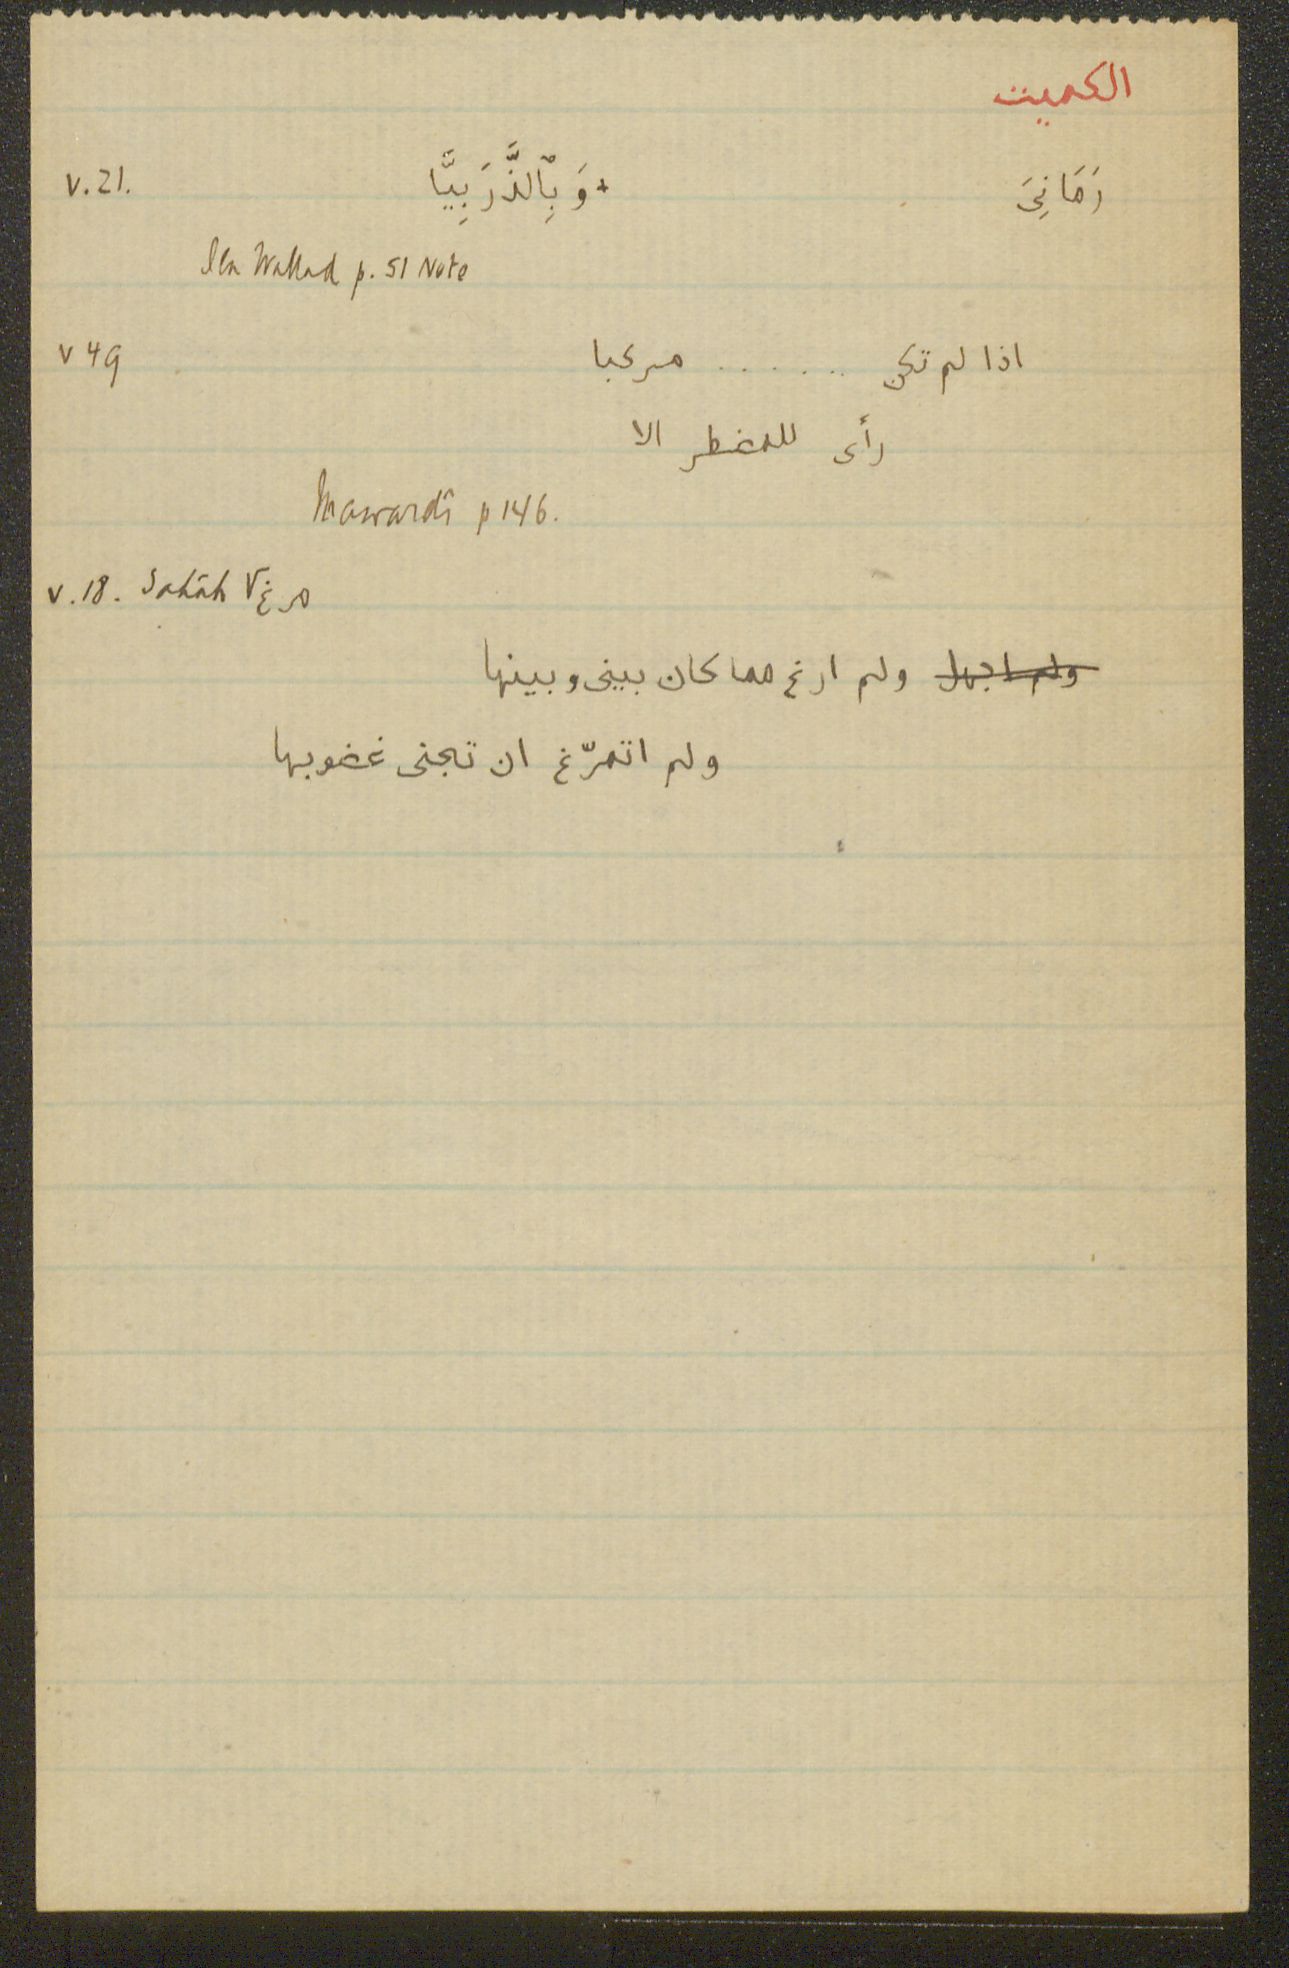 الكميت
رَمَانِىَ * وَبِٱلذَّرَبِيَّا v.21.
Ibn Wallad p. 51 Note
اذا لم تكن . . . . . . مركبا v 49
رأى للمضطر الا
Mawardî p 146.
v. 18. Sahāh √مرغ
ولم اجهل ولم ارغ مما كان بينى وبينها
ولم اتمرّغ ان تجنى غضوبها